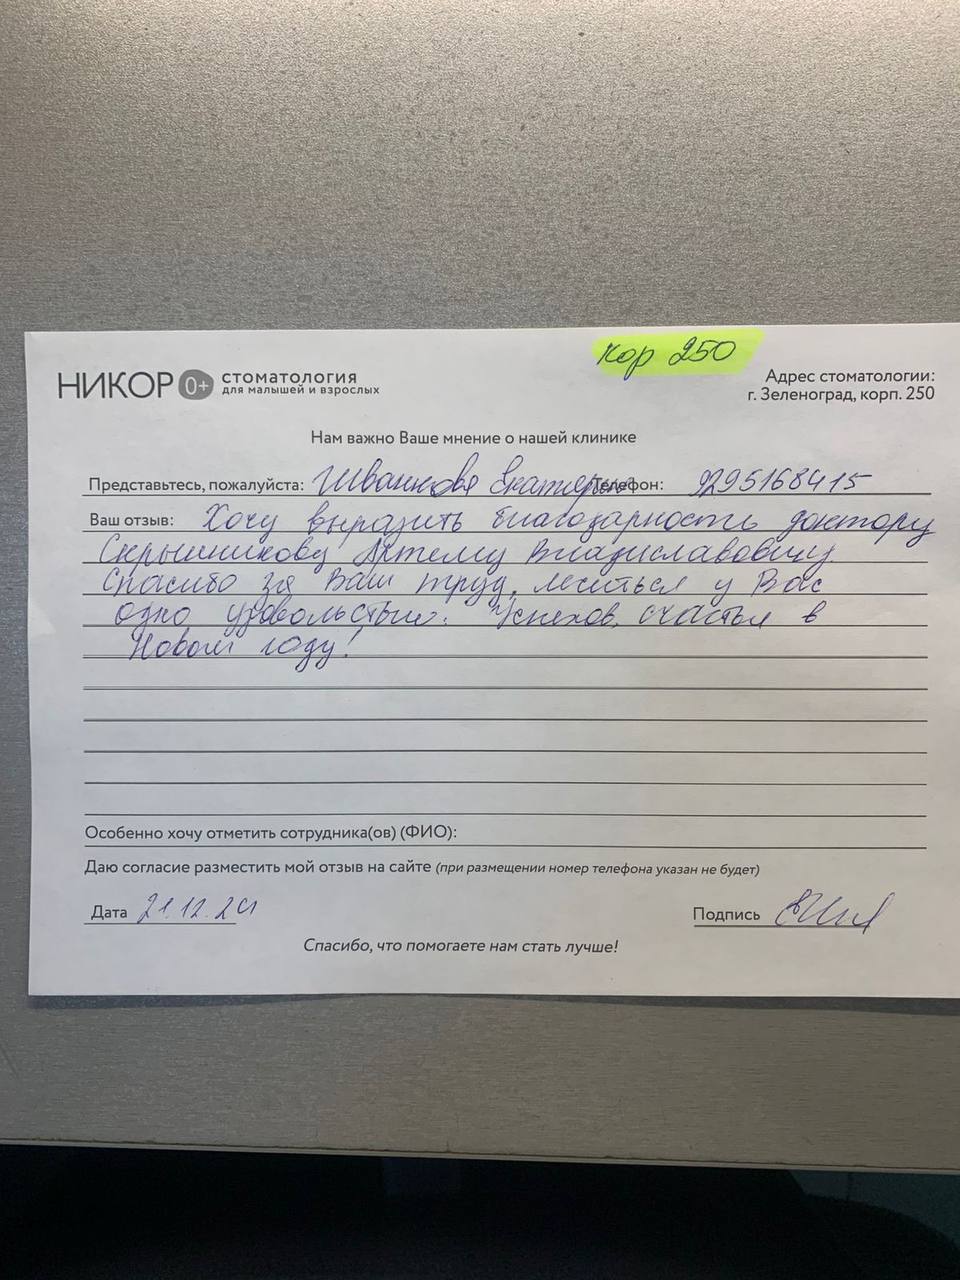 кор 250
НИКОР 0+ СТОМАТОЛОГИЯ
ДЛЯ МАЛЫШЕЙ И ВЗРОСЛЫХ
Адрес стоматологии:
г. Зеленоград, корп. 250
Нам важно Ваше мнение о нашей клинике
Представьтесь, пожалуйста: Екатерина Телефон: 9295168415
Ваш отзыв: Хочу выразить благодарность доктору
Скрынникову Артему Владиславовичу.
Спасибо за Ваш труд, лечиться у Вас
одно удовольствие. Успехов, счастья в
Новом году!
Особенно хочу отметить сотрудника(ов) (ФИО):
Даю согласие разместить мой отзыв на сайте (при размещении номер телефона указан не будет)
Дата 21.12.24
Подпись
Спасибо, что помогаете нам стать лучше!